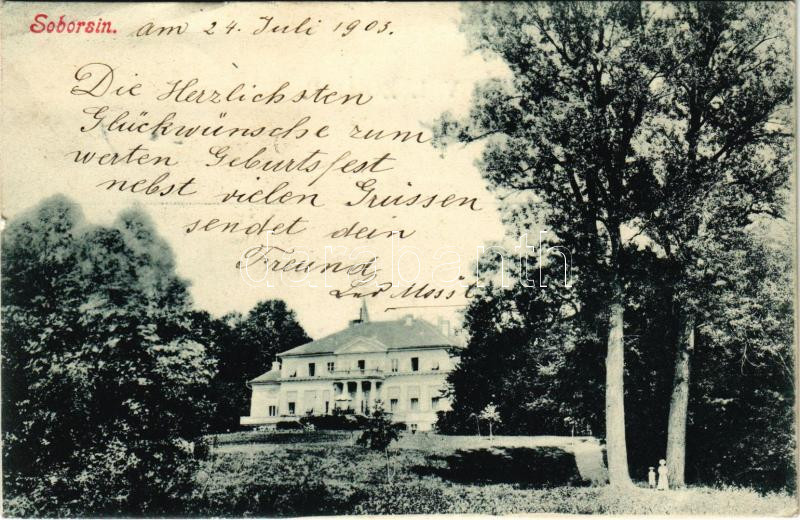 Soborsin. am 24. Juli 1903.
Die Herzlichsten
Glückwünsche zum
werten Geburtsfest
nebst vielen Grüssen
sendet dein
Freund
darabanth